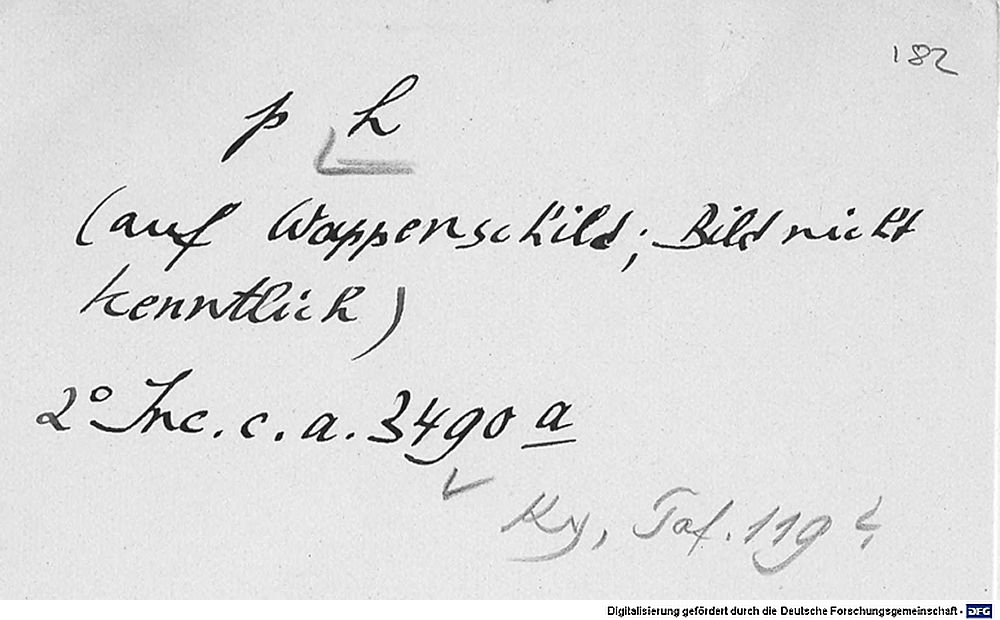 182
p h
(auf Wappenschild; Bild nicht
kenntlich)
2° Inc. c. a. 3490 a
Ky, Taf. 119
Digitalisierung gefördert durch die Deutsche Forschungsgemeinschaft - DFG